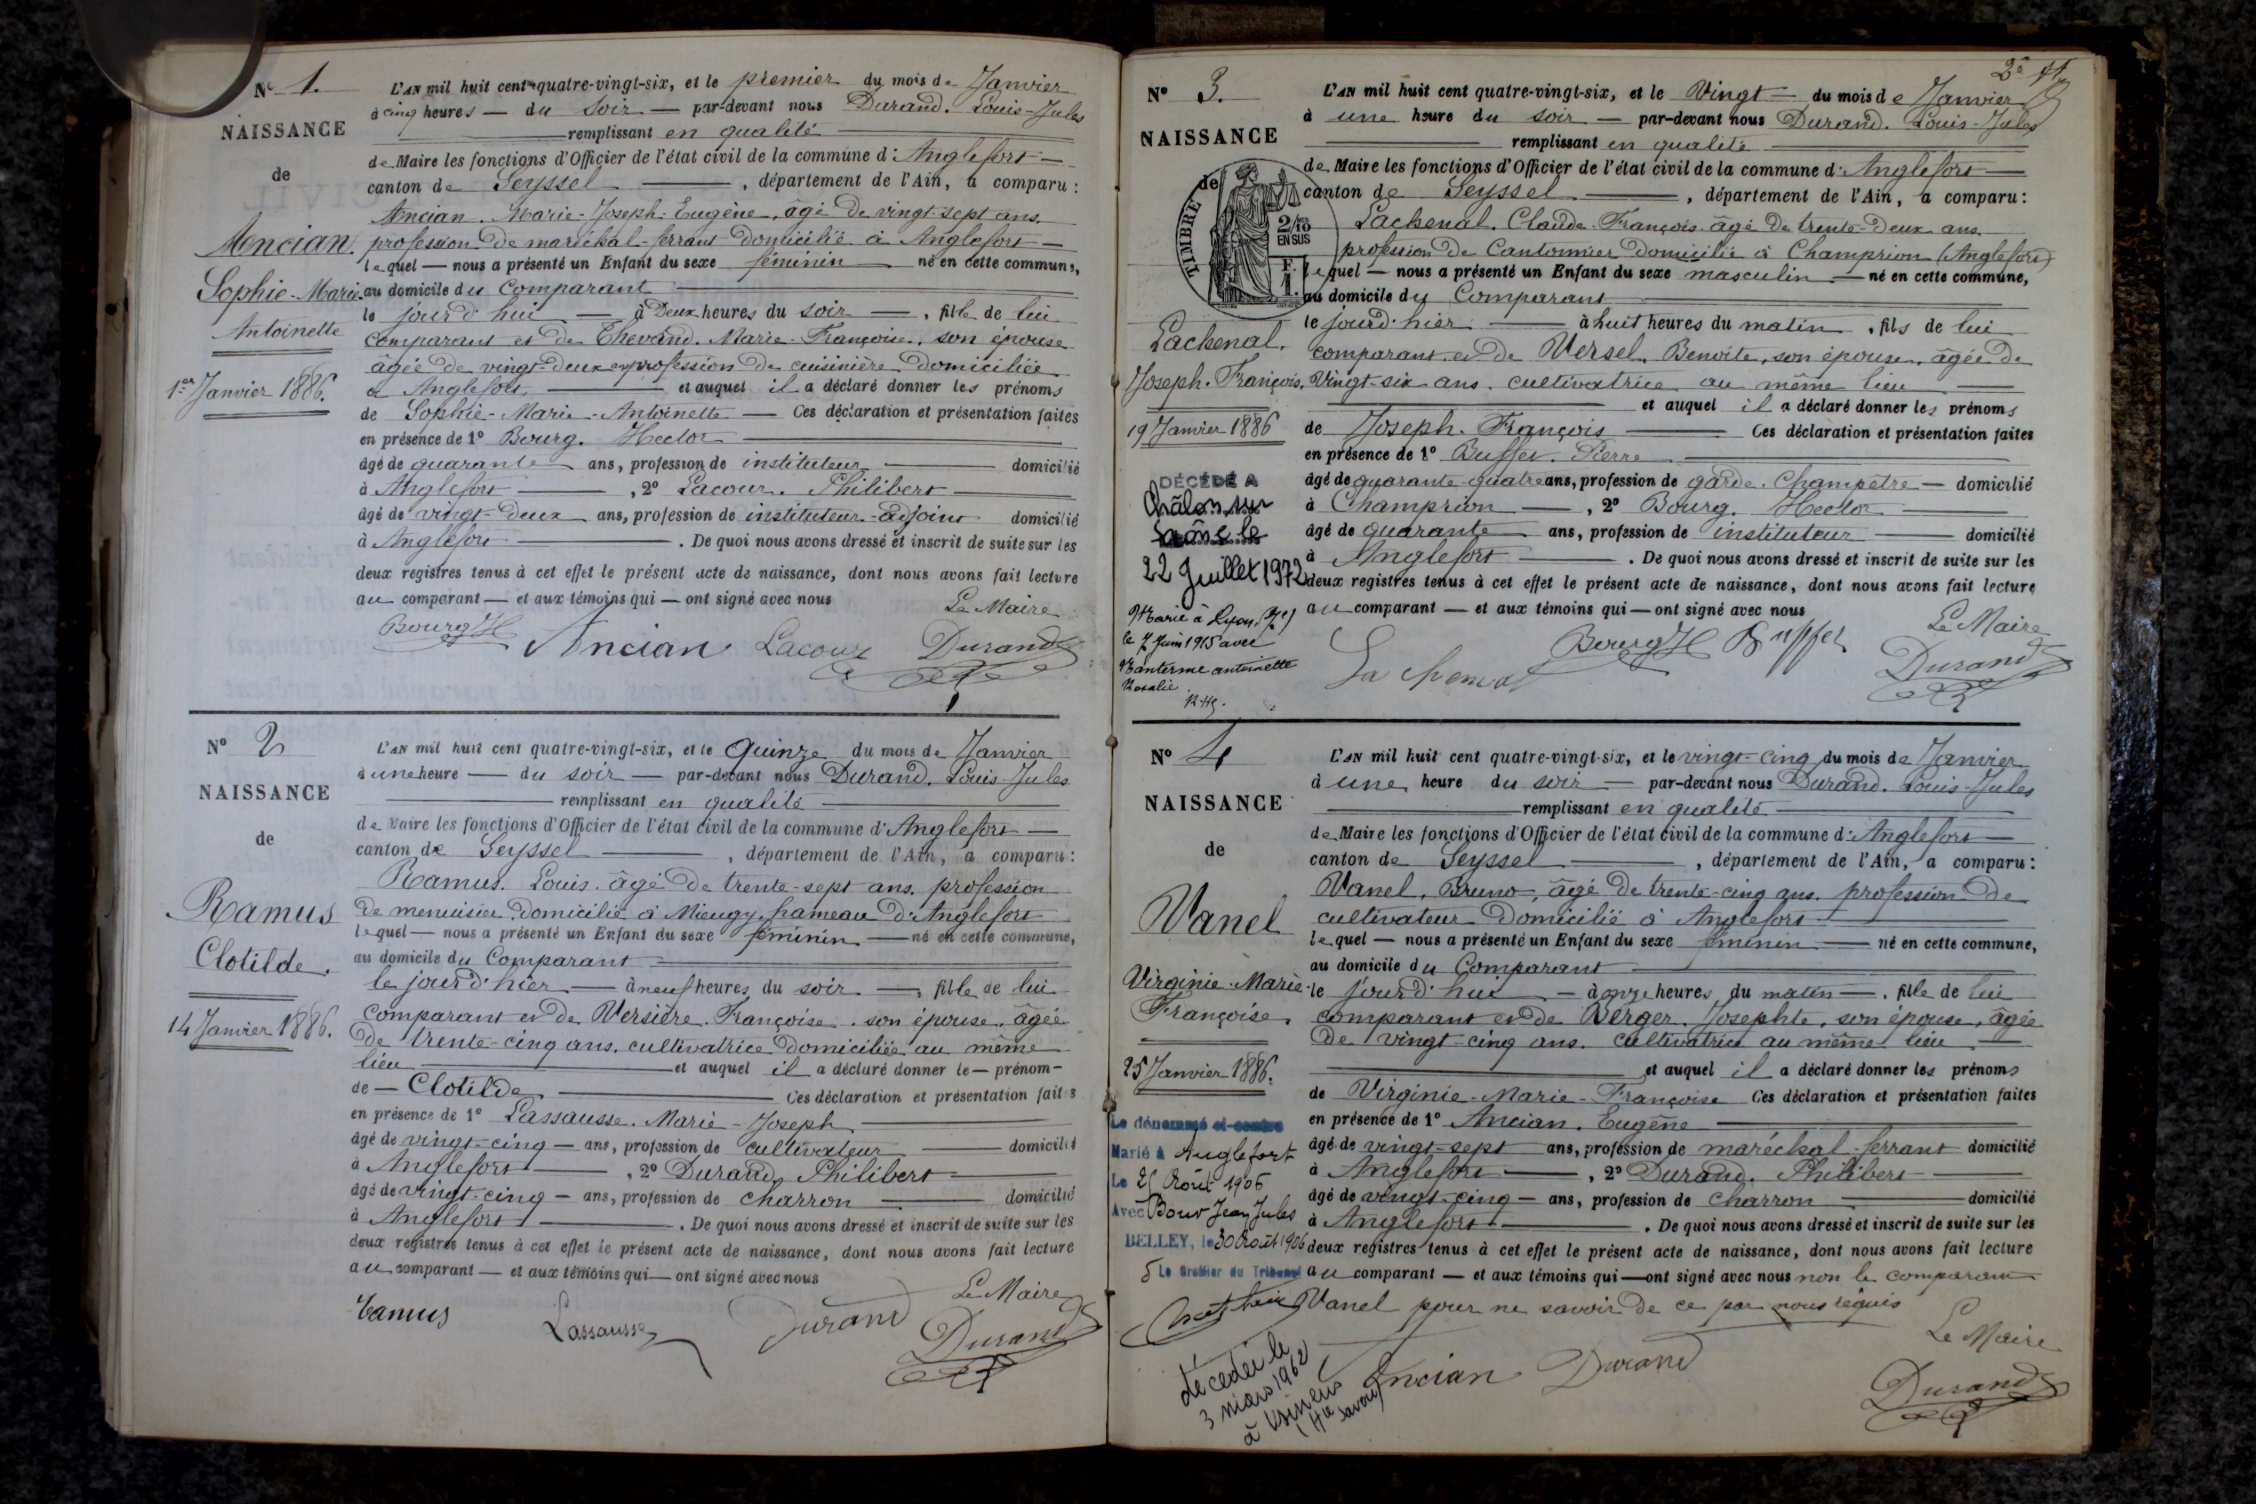 N° 1.
NAISSANCE
de
Ancian.
Sophie-Marie
Antoinette
1er Janvier 1886.
L'AN mil huit cent quatre-vingt-six, et le premier du mois de Janvier
à cinq heures — du soir — par-devant nous Durand. Louis-Jules
remplissant en qualité
de Maire les fonctions d'Officier de l'état civil de la commune d'Anglefort —
canton de Seyssel —, département de l'Ain, a comparu :
Ancian. Marie-Joseph-Eugène, âgé de vingt-sept ans.
profession de maréchal-ferrant domicilié à Anglefort —
lequel — nous a présenté un Enfant du sexe féminin — né en cette commune,
au domicile du Comparant
le jourd'hui — à Deux heures du soir —, fille de lui
comparant et de Thevand. Marie-Françoise, son épouse
âgée de vingt-deux ans profession de cuisinière domiciliée
à Anglefort — et auquel il a déclaré donner les prénoms
de Sophie-Marie-Antoinette — Ces déclaration et présentation faites
en présence de 1° Bourg. Hector
âgé de quarante ans, profession de instituteur — domicilié
à Anglefort —, 2° Lacour. Philibert
âgé de vingt-deux ans, profession de instituteur-adjoint domicilié
à Anglefort — . De quoi nous avons dressé et inscrit de suite sur les
deux registres tenus à cet effet le présent acte de naissance, dont nous avons fait lecture
au comparant — et aux témoins qui — ont signé avec nous
Le Maire
Bourg H Ancian Lacour Durand
N° 2
NAISSANCE
de
Ramus
Clotilde.
14 Janvier 1886.
L'AN mil huit cent quatre-vingt-six, et le Quinze du mois de Janvier
à une heure — du soir — par-devant nous Durand. Louis-Jules
remplissant en qualité
de Maire les fonctions d'Officier de l'état civil de la commune d'Anglefort —
canton de Seyssel —, département de l'Ain, a comparu :
Ramus. Louis. âgé de trente-sept ans. profession
de menuisier domicilié à Mieugy, hameau d'Anglefort
lequel — nous a présenté un Enfant du sexe féminin — né en cette commune,
au domicile du Comparant
le jourd'hier — à neuf heures du soir —, fille de lui
comparant et de Versière. Françoise. son épouse. âgée
de trente-cinq ans. cultivatrice domiciliée au même
lieu — et auquel il a déclaré donner le — prénom —
de — Clotilde — Ces déclaration et présentation faites
en présence de 1° Lassausse. Marie-Joseph
âgé de vingt-cinq — ans, profession de cultivateur — domicilié
à Anglefort —, 2° Durand, Philibert
âgé de vingt-cinq — ans, profession de charron — domicilié
à Anglefort — . De quoi nous avons dressé et inscrit de suite sur les
deux registres tenus à cet effet le présent acte de naissance, dont nous avons fait lecture
au comparant — et aux témoins qui — ont signé avec nous
Le Maire
Ramus Lassausse Durand Durand
2e
N° 3.
NAISSANCE
de
TIMBRE
2/10
EN SUS
F.
1.
Lachenal.
Joseph. François.
19 Janvier 1886
DÉCÉDÉ A
Châlon sur
Saône le
22 Juillet 1972
Marié à Lyon
le 7 Juin 1915 avec
antoinette
Rosalie
L'AN mil huit cent quatre-vingt-six, et le Vingt — du mois de Janvier
à une heure du soir — par-devant nous Durand. Louis-Jules
remplissant en qualité
de Maire les fonctions d'Officier de l'état civil de la commune d'Anglefort —
canton de Seyssel —, département de l'Ain, a comparu :
Lachenal. Claude-François âgé de trente-deux ans.
profession de Cantonnier domicilié à Champrion (Anglefort)
lequel — nous a présenté un Enfant du sexe masculin — né en cette commune,
au domicile du Comparant
le jourd'hier — à huit heures du matin, fils de lui
comparant et de Versel. Benoîte, son épouse, âgée de
Vingt-six ans. cultivatrice au même lieu
et auquel il a déclaré donner les prénoms
de Joseph. François — Ces déclaration et présentation faites
en présence de 1° Buffet. Pierre
âgé de quarante-quatre ans, profession de garde. Champêtre — domicilié
à Champrion —, 2° Bourg. Hector
âgé de quarante ans, profession de instituteur — domicilié
à Anglefort — . De quoi nous avons dressé et inscrit de suite sur les
deux registres tenus à cet effet le présent acte de naissance, dont nous avons fait lecture
au comparant — et aux témoins qui — ont signé avec nous
Le Maire
Lachenal Bourg H Buffet Durand
N° 4
NAISSANCE
de
Vanel
Virginie-Marie-
Françoise.
25 Janvier 1886.
Le dénommé ci-contre
Marié à Anglefort
Le 25 Août 1906
Avec Bouv Jean Jules
BELLEY, le 30 Août 1906
Le Greffier du Tribunal
décédée le
3 mars 1962
à Usinens
(Hte Savoie)
L'AN mil huit cent quatre-vingt-six, et le vingt-cinq du mois de Janvier
à une heure du soir — par-devant nous Durand. Louis-Jules
remplissant en qualité
de Maire les fonctions d'Officier de l'état civil de la commune d'Anglefort —
canton de Seyssel —, département de l'Ain, a comparu :
Vanel, Bruno, âgé de trente-cinq ans. profession de
cultivateur domicilié à Anglefort
lequel — nous a présenté un Enfant du sexe féminin — né en cette commune,
au domicile du Comparant
le jourd'hui — à onze heures du matin —, fille de lui
comparant et de Berger. Josephte, son épouse, âgée
de vingt-cinq ans. cultivatrice au même lieu
et auquel il a déclaré donner les prénoms
de Virginie-Marie-Françoise Ces déclaration et présentation faites
en présence de 1° Ancian. Eugène
âgé de vingt-sept ans, profession de maréchal-ferrant domicilié
à Anglefort —, 2° Durand. Philibert
âgé de vingt-cinq — ans, profession de charron — domicilié
à Anglefort — . De quoi nous avons dressé et inscrit de suite sur les
deux registres tenus à cet effet le présent acte de naissance, dont nous avons fait lecture
au comparant — et aux témoins qui — ont signé avec nous non le comparant
Vanel pour ne savoir de ce par nous requis
Le Maire
Ancian Durand Durand